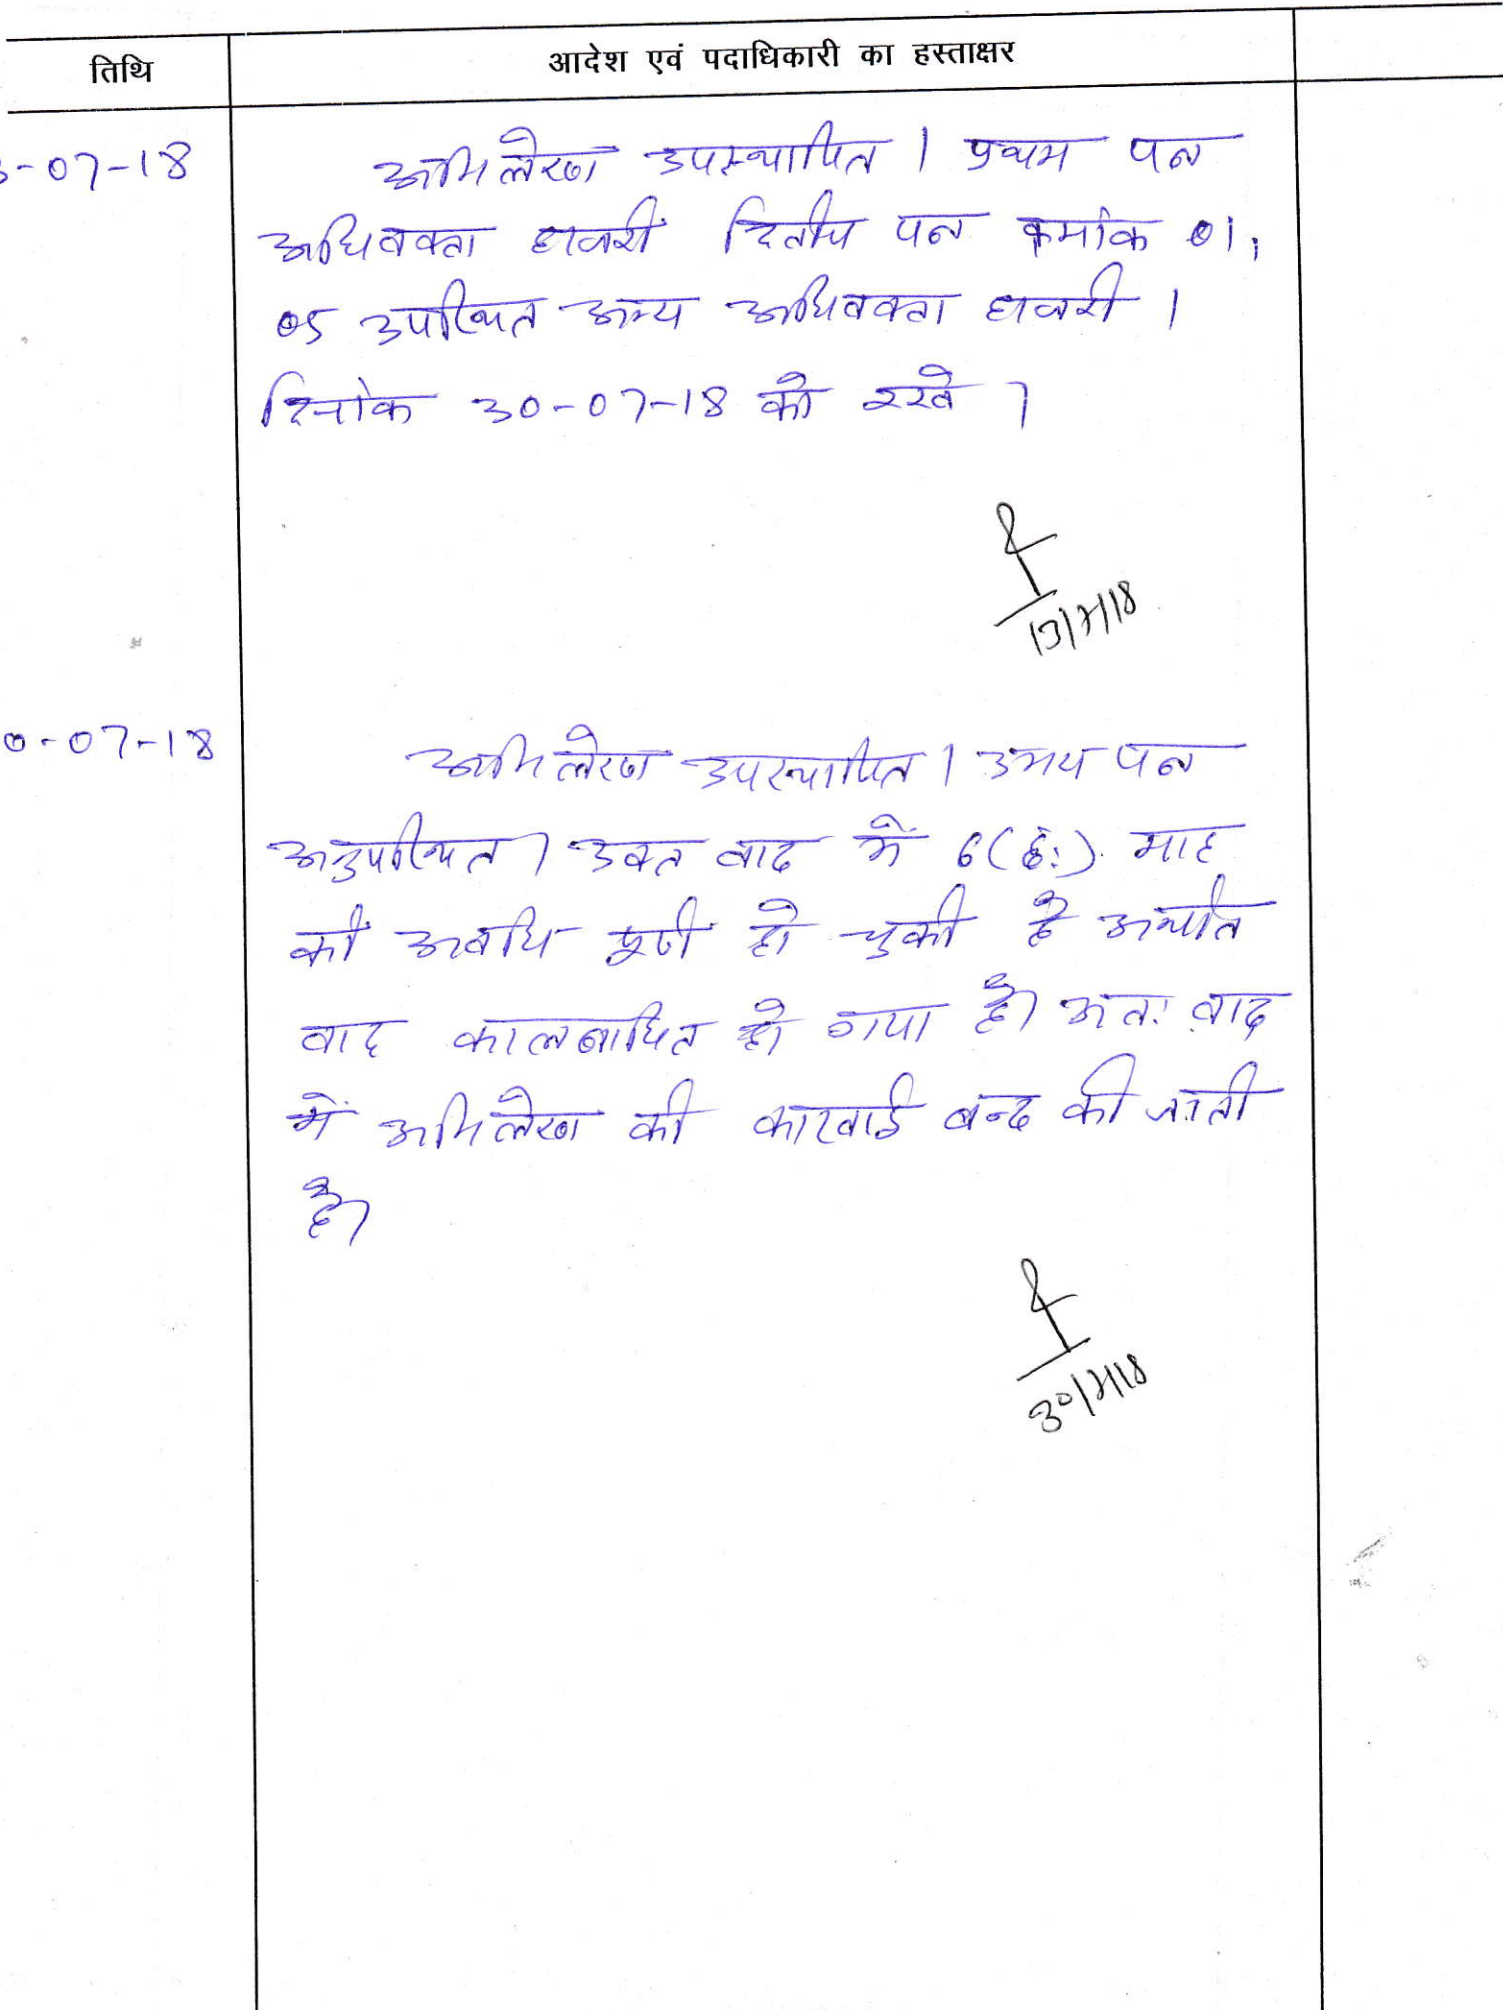 तिथि
आदेश एवं पदाधिकारी का हस्ताक्षर
-07-18
अभिलेख उपस्थापित । प्रथम पक्ष
अधिवक्ता हाजरी द्वितीय पक्ष क्रमांक 01,
05 उपस्थित अन्य अधिवक्ता हाजरी ।
दिनांक 30-07-18 को रखे ।
13/7/18
0-07-18
अभिलेख उपस्थापित । उभय पक्ष
अनुपस्थित । उक्त वाद में 6(छः) माह
की अवधि पूर्ण हो चुकी है अर्थात
वाद कालबाधित हो गया है। अतः वाद
में अभिलेख की कारवाई बन्द की जाती
है।
30/7/18